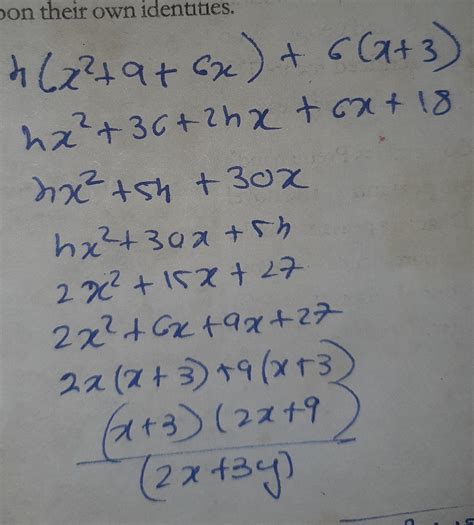 pon their own identities.
4(x²+9+6x) + 6(x+3)
4x²+36+24x + 6x+18
4x²+54+30x
4x²+30x+54
2x²+15x+27
2x²+6x+9x+27
2x(x+3)+9(x+3)
(x+3)(2x+9)
(2x+3y)